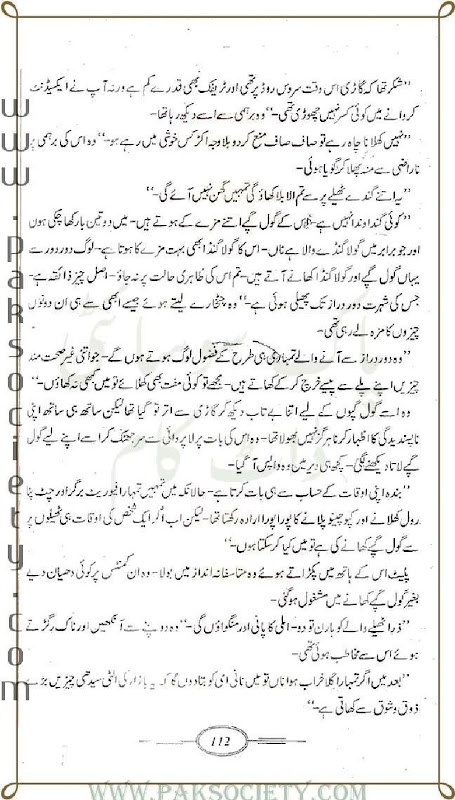 ”شکر تھا کہ گاڑی اس وقت سروس روڈ پر تھی اور ٹریفک بھی قدرے کم ہے ورنہ آپ نے ایکسیڈنٹ
کروانے میں کوئی کسر نہیں چھوڑی تھی۔“ وہ برہمی سے اسے دیکھ رہا تھا۔
”نہیں کھلانا چاہ رہے تو صاف صاف منع کر دو بلاوجہ اکڑ کس خوشی میں رہے ہو۔“ وہ اس کی برہمی پر
ناراضی سے منہ پھلا کر گویا ہوئی۔
”یہ اتنے گندے ٹھیلے پر سے تم الا بلا کھاؤ گی تمہیں گھن نہیں آئے گی۔“
”کوئی گندا وندا نہیں ہے۔ اس کے گول گپے اتنے مزے کے ہوتے ہیں۔ میں دو تین بار کھا چکی ہوں
اور جو برابر میں گولا گنڈے والا ہے ناں۔ اس کا گولا گنڈا بھی بہت مزے کا ہوتا ہے۔ لوگ دور دور سے
یہاں گول گپے اور گولا گنڈا کھانے آتے ہیں۔ تم اس کی ظاہری حالت پر نہ جاؤ۔ اصل چیز ذائقہ ہے۔
جس کی شہرت دور دراز تک پھیلی ہوئی ہے۔“ وہ چٹخارے لیتے ہوئے جیسے ابھی سے ہی ان دونوں
چیزوں کا مزہ لے رہی تھی۔
”وہ دور دراز سے آنے والے تمہاری ہی طرح کے فضول لوگ ہوتے ہوں گے۔ جو اتنی غیر صحت مند
چیزیں اپنے پلے سے پیسے خرچ کر کے کھاتے ہیں۔ مجھے تو کوئی مفت بھی کھلائے تو میں کبھی نہ کھاؤں۔“
وہ اسے گول گپوں کے لیے اتنا بے تاب دیکھ کر گاڑی سے اتر تو گیا تھا لیکن ساتھ ہی ساتھ اپنی
ناپسندیدگی کا اظہار کرنا ہرگز نہیں بھولا تھا۔ وہ اس کی بات پر لاپروائی سے سر جھٹک کر اسے اپنے لیے گول
گپے لاتا دیکھنے لگی۔ کچھ ہی دیر میں وہ واپس آ گیا۔
”بندہ اپنی اوقات کے حساب سے ہی بات کرتا ہے۔ حالانکہ میں تمہیں تمہارا فیورٹ برگر اور چٹ پٹا
رول کھلانے اور کیپوچینو پلانے کا پورا پورا ارادہ رکھتا تھا۔ لیکن اب اگر ایک شخص کی اوقات ہی ٹھیلوں پر
سے گول گپے کھانے کی ہے تو میں کیا کر سکتا ہوں۔“
پلیٹ اس کے ہاتھ میں پکڑاتے ہوئے وہ متاسفانہ انداز میں بولا۔ وہ ان کمنٹس پر کوئی دھیان دیے
بغیر گول گپے کھانے میں مشغول ہو گئی۔
”ذرا ٹھیلے والے کو ہارن تو دو۔ املی کا پانی اور منگواؤں گی۔“ وہ دوپٹے سے آنکھیں اور ناک رگڑتے
ہوئے اس سے مخاطب ہوئی تھی۔
”بعد میں اگر تمہارا گلا خراب ہوا ناں تو میں نانی امی کو بتا دوں گا کہ یہ بازار کی الٹی سیدھی چیزیں بڑے
ذوق و شوق سے کھاتی ہے۔“
112
www.paksociety.com
WWW.PAKSOCIETY.COM
پاک سوسائٹی
ڈاٹ کام